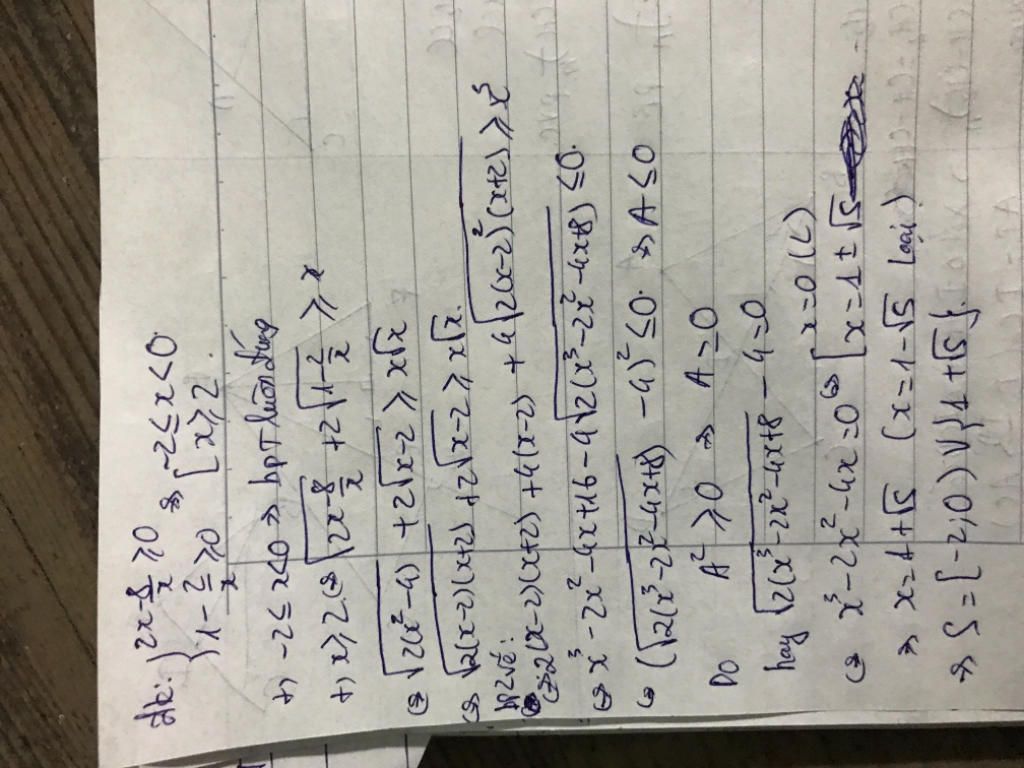 đk: { 2x - 8/x ≥ 0
{ 1 - 2/x ≥ 0 ⇒ [ -2 ≤ x < 0
[ x ≥ 2.
+) -2 ≤ x < 0 ⇒ bpT luôn đúng
+) x ≥ 2 ⇔ √(2x - 8/x) + 2√(1 - 2/x) ≥ x
⇔ √(2(x² - 4)) + 2√(x - 2) ≥ x√x
⇔ √(2(x-2)(x+2)) + 2√(x-2) ≥ x√x.
bp 2 vế:
⇔ 2(x-2)(x+2) + 4(x-2) + 4√(2(x-2)²(x+2)) ≥ x³
⇔ x³ - 2x² - 4x + 16 - 4√(2(x³ - 2x² - 4x + 8)) ≤ 0.
⇔ (√(2(x³ - 2x² - 4x + 8)) - 4)² ≤ 0. ⇒ A ≤ 0
Do A² ≥ 0 ⇒ A = 0
hay √(2(x³ - 2x² - 4x + 8) - 4 = 0
⇔ x³ - 2x² - 4x = 0 ⇔ [ x = 0 (L)
[ x = 1 ± √5
⇒ x = 1 + √5 (x = 1 - √5 loại)
⇒ S = [-2, 0) ∪ {1 + √5}.